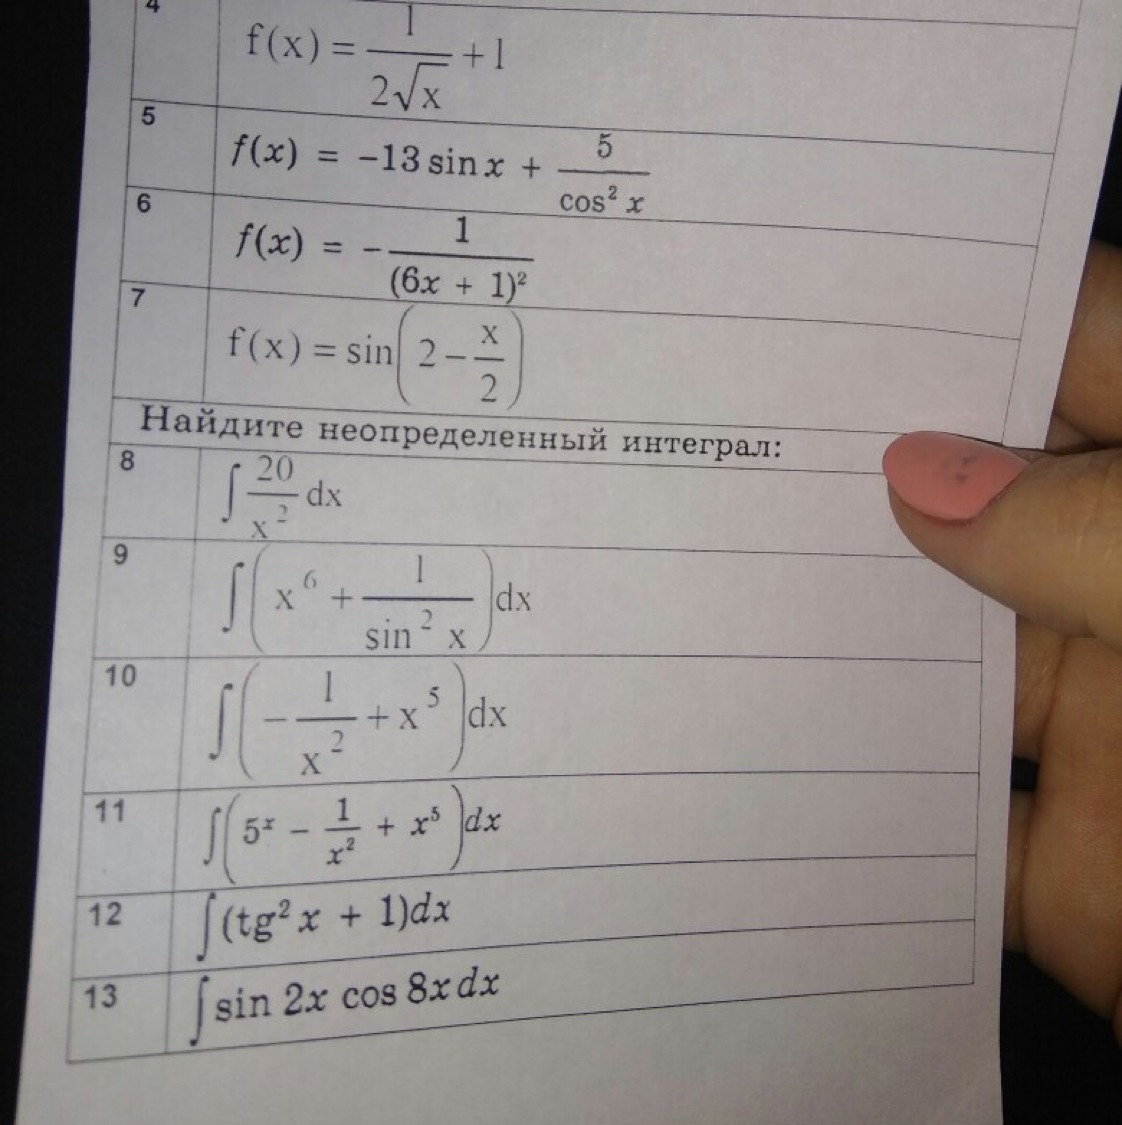 4 f(x) = 1/(2√x) + 1
5 f(x) = −13 sin x + 5/(cos² x)
6 f(x) = − 1/(6x + 1)²
7 f(x) = sin(2 − x/2)
Найдите неопределенный интеграл:
8 ∫ 20/x² dx
9 ∫(x⁶ + 1/(sin² x))dx
10 ∫(− 1/x² + x⁵)dx
11 ∫(5ˣ − 1/x² + x⁵)dx
12 ∫(tg² x + 1)dx
13 ∫ sin 2x cos 8x dx